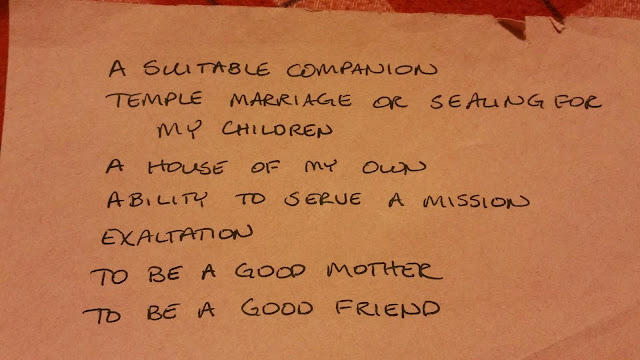 A SUITABLE COMPANION
TEMPLE MARRIAGE OR SEALING FOR
MY CHILDREN
A HOUSE OF MY OWN
ABILITY TO SERVE A MISSION
EXALTATION
TO BE A GOOD MOTHER
TO BE A GOOD FRIEND